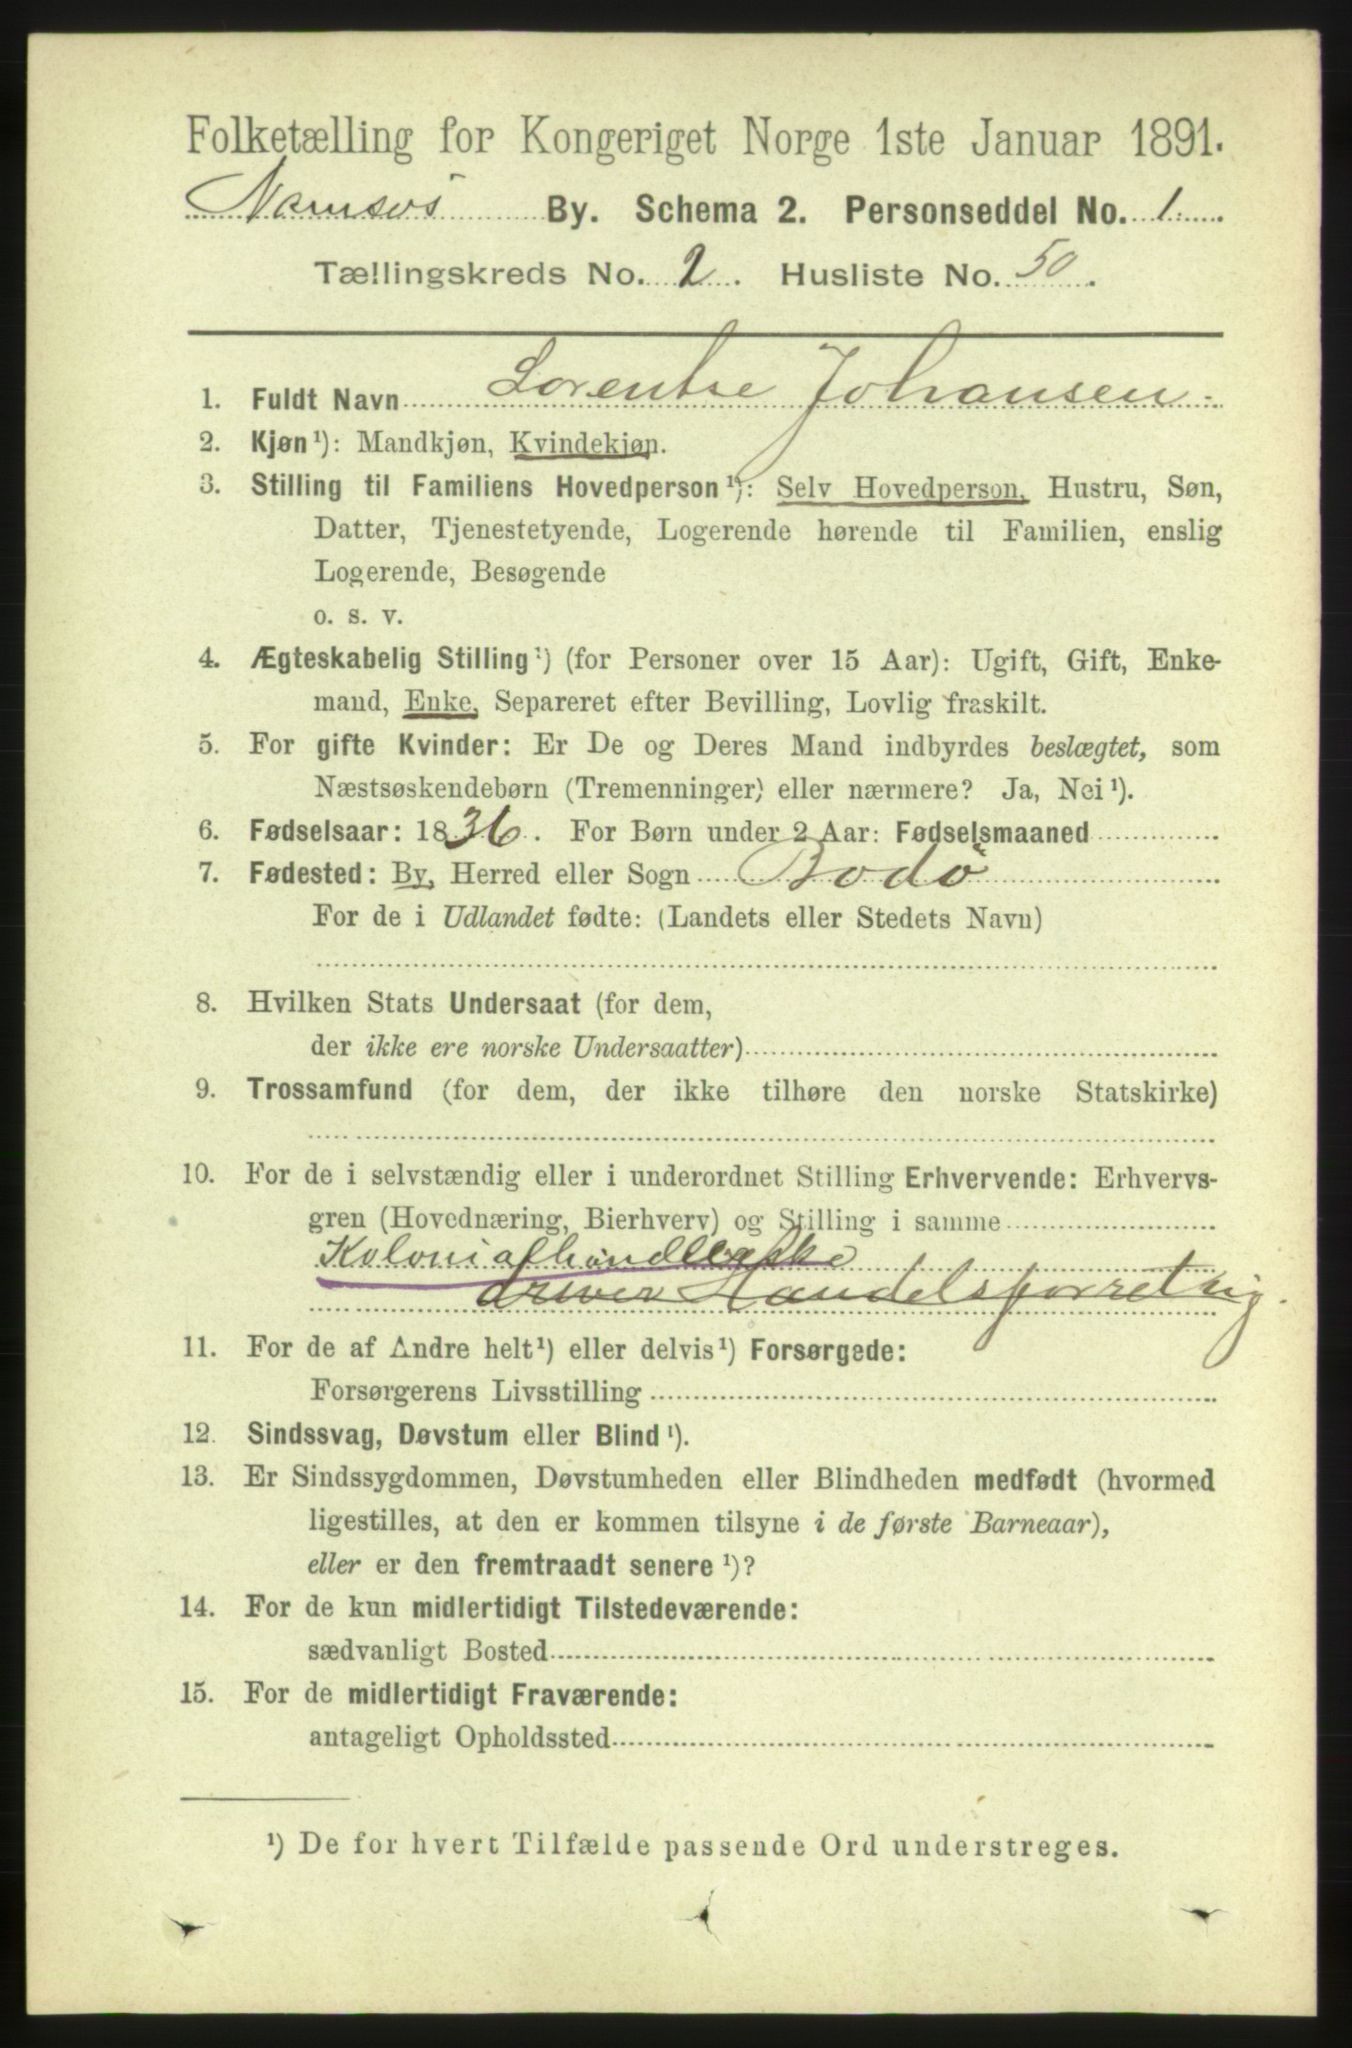 Folketælling for Kongeriget Norge 1ste Januar 1891.
Namsos By. Schema 2. Personseddel No. 1
Tællingskreds No. 2. Husliste No. 50.
1. Fuldt Navn Lorentse Johansen
2. Kjøn¹): Mandkjøn, Kvindekjøn.
3. Stilling til Familiens Hovedperson¹): Selv Hovedperson, Hustru, Søn,
Datter, Tjenestetyende, Logerende hørende til Familien, enslig
Logerende, Besøgende
o. s. v.
4. Ægteskabelig Stilling¹) (for Personer over 15 Aar): Ugift, Gift, Enke-
mand, Enke, Separeret efter Bevilling, Lovlig fraskilt.
5. For gifte Kvinder: Er De og Deres Mand indbyrdes beslægtet, som
Næstsøskendebørn (Tremenninger) eller nærmere? Ja, Nei¹).
6. Fødselsaar: 1836. For Børn under 2 Aar: Fødselsmaaned
7. Fødested: By, Herred eller Sogn Bodø
For de i Udlandet fødte: (Landets eller Stedets Navn)
8. Hvilken Stats Undersaat (for dem,
der ikke ere norske Undersaatter)
9. Trossamfund (for dem, der ikke tilhøre den norske Statskirke)
10. For de i selvstændig eller i underordnet Stilling Erhvervende: Erhvervs-
gren (Hovednæring, Bierhverv) og Stilling i samme
Kolonialhandlerske
driver Handelsforretnig.
11. For de af Andre helt¹) eller delvis¹) Forsørgede:
Forsørgerens Livsstilling
12. Sindssvag, Døvstum eller Blind¹).
13. Er Sindssygdommen, Døvstumheden eller Blindheden medfødt (hvormed
ligestilles, at den er kommen tilsyne i de første Barneaar),
eller er den fremtraadt senere¹)?
14. For de kun midlertidigt Tilstedeværende:
sædvanligt Bosted
15. For de midlertidigt Fraværende:
antageligt Opholdssted
¹) De for hvert Tilfælde passende Ord understreges.